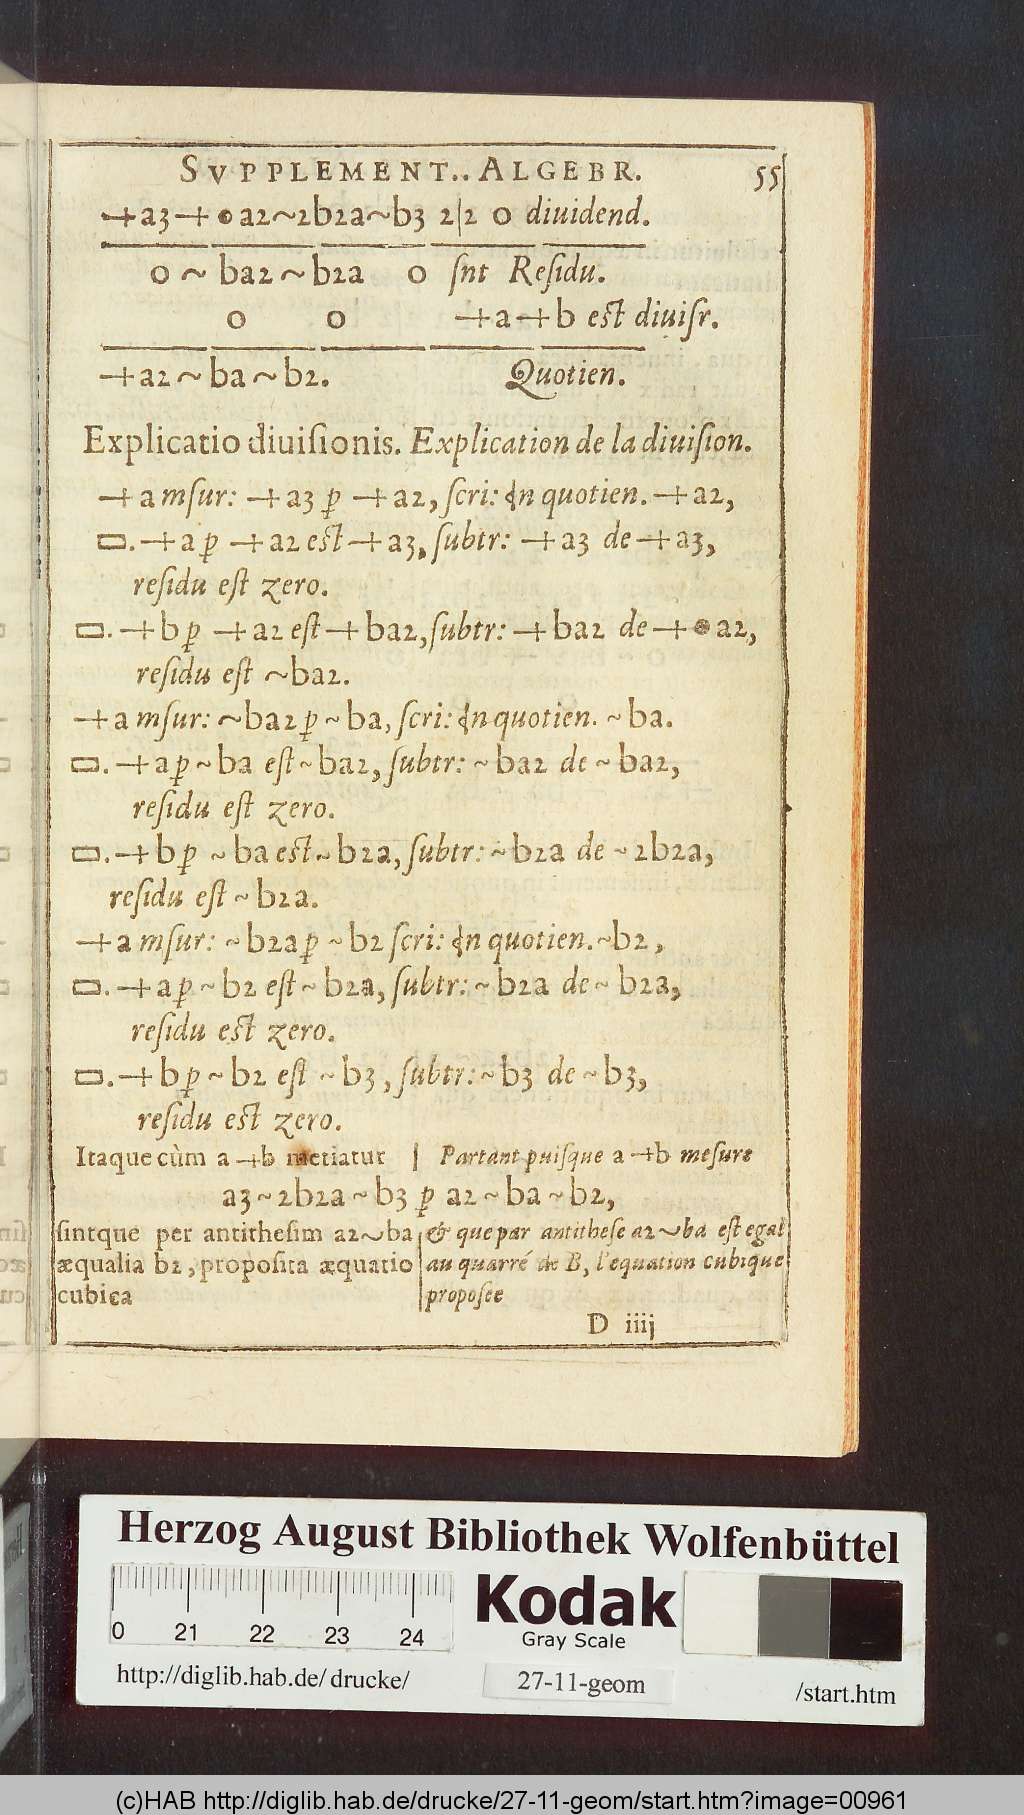 SVPPLEMENT.. ALGEBR. 55
+a3+•a2~2b2a~b3 2|2 0 diuidend.
0 ~ ba2 ~ b2a 0 ſnt Reſidu.
0 0 +a+b est diuiſr.
+a2 ~ ba ~ b2. Quotien.
Explicatio diuiſionis. Explication de la diuiſion.
+a mſur: +a3 p +a2, ſcri: quotien. +a2,
▭. +a p +a2 est +a3, ſubtr: +a3 de +a3,
reſidu eſt zero.
▭. +b p +a2 eſt +ba2, ſubtr: +ba2 de +•a2,
reſidu eſt ~ba2.
+a mſur: ~ba2 p ~ba, ſcri: quotien. ~ba.
▭. +a p ~ba eſt ~ba2, ſubtr: ~ba2 de ~ba2,
reſidu eſt zero.
▭. +b p ~ba est ~b2a, ſubtr: ~b2a de ~2b2a,
reſidu eſt ~b2a.
+a mſur: ~b2a p ~b2 ſcri: quotien. ~b2,
▭. +a p ~b2 eſt ~b2a, ſubtr: ~b2a de ~b2a,
reſidu est zero.
▭. +b p ~b2 eſt ~b3, ſubtr: ~b3 de ~b3,
reſidu est zero.
Itaque cùm a +b metiatur | Partant puiſque a +b meſure
a3 ~2b2a ~b3 p a2 ~ba ~b2,
ſintque per antitheſim a2~ba
æqualia b2, propoſita æquatio
cubica
& que par antitheſe a2 ~ba eſt egal
au quarré de B, l'equation cubique
propoſee
D iiij
Herzog August Bibliothek Wolfenbüttel
0 21 22 23 24
Kodak
Gray Scale
http://diglib.hab.de/drucke/ 27-11-geom /start.htm
(c)HAB http://diglib.hab.de/drucke/27-11-geom/start.htm?image=00961